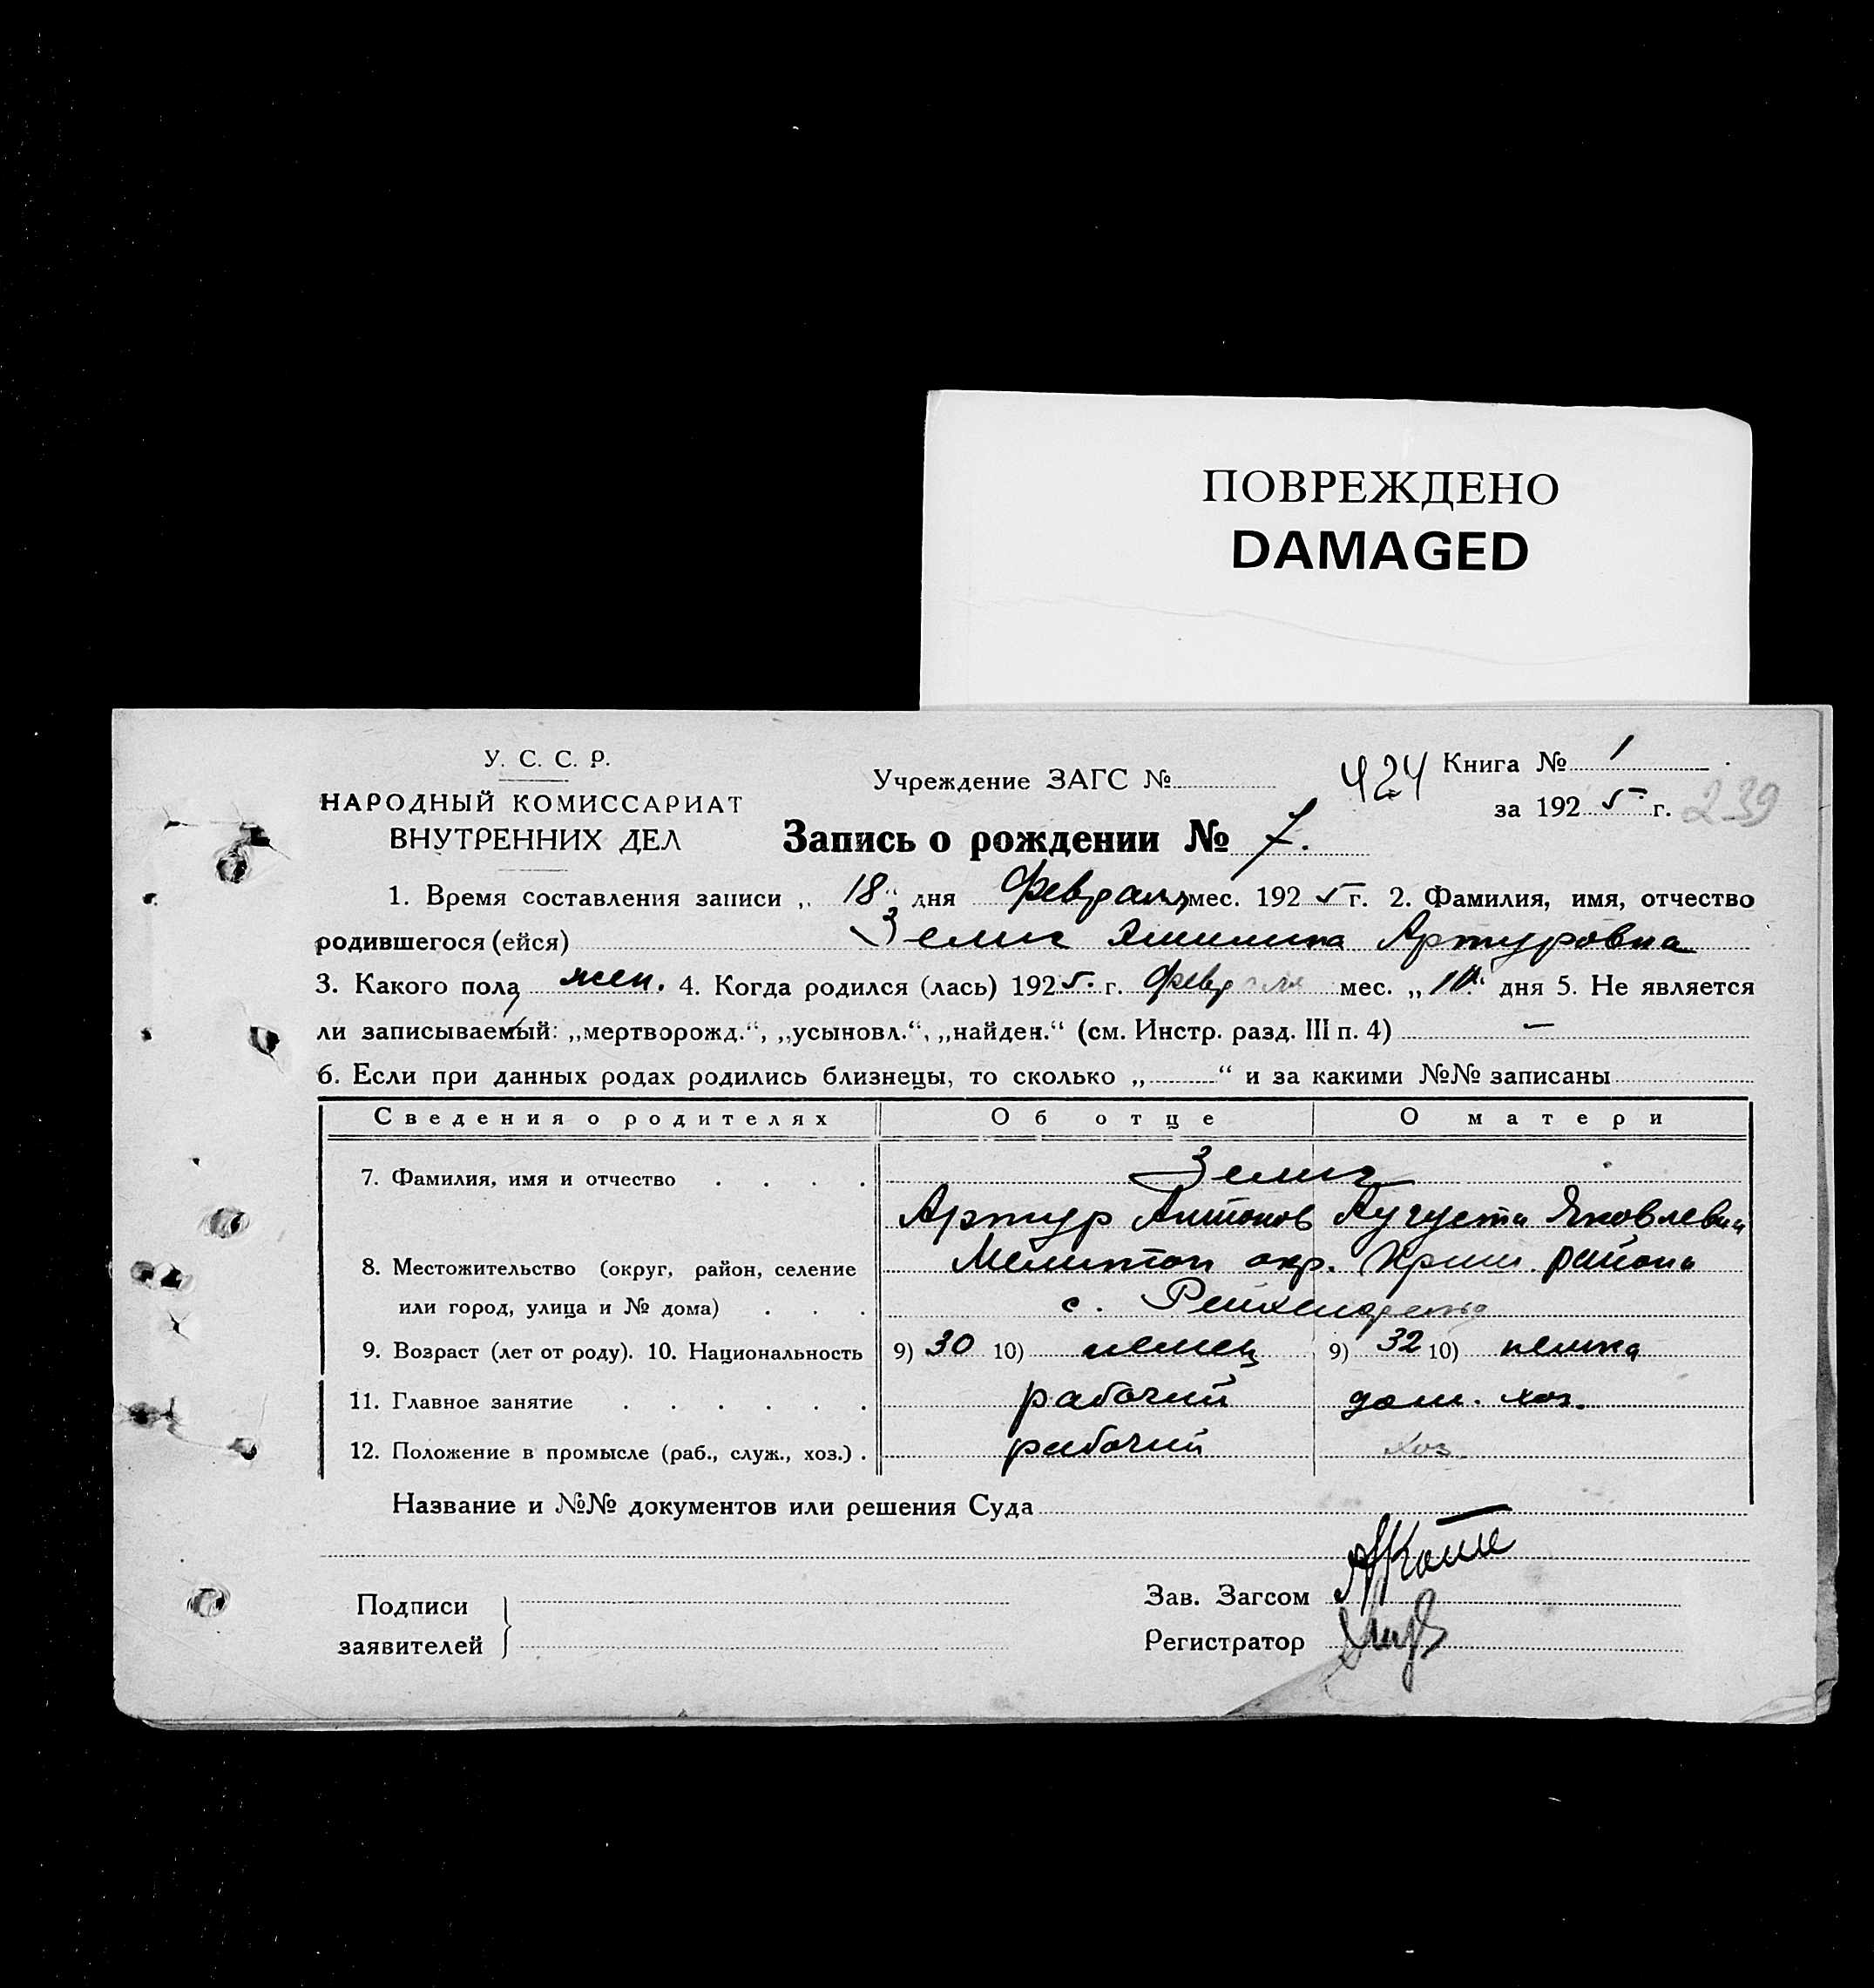 ПОВРЕЖДЕНО
DAMAGED
У. С. С. Р.
НАРОДНЫЙ КОМИССАРИАТ
ВНУТРЕННИХ ДЕЛ
Учреждение ЗАГС №
424
Книга № 1
за 1925 г.
239
Запись о рождении № 7.
1. Время составления записи „18“ дня Февраля мес. 1925 г. 2. Фамилия, имя, отчество
родившегося (ейся) Зелиг Артуровна
3. Какого пола жен. 4. Когда родился (лась) 1925. г. февраля мес. „ “ дня 5. Не является
ли записываемый: „мертворожд.“, „усыновл.“, „найден.“ (см. Инстр. разд. III п. 4) —
6. Если при данных родах родились близнецы, то сколько „ “ и за какими №№ записаны
Сведения о родителях Об отце О матери
7. Фамилия, имя и отчество . . . . Зелиг
Артур Антонов Аугуста Яковлевна
8. Местожительство (округ, район, селение Мелитоп окр. района
или город, улица и № дома) . . . с. Рейхенфельд
9. Возраст (лет от роду). 10. Национальность 9) 30 10) немец 9) 32 10) немка
11. Главное занятие . . . . . . рабочий дом. хоз.
12. Положение в промысле (раб., служ., хоз.) . рабочий хоз
Название и №№ документов или решения Суда
Подписи
заявителей
Зав. Загсом
Регистратор